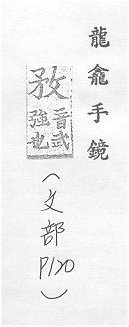 龍龕手鏡
敄 音武
強也
(文部P120)